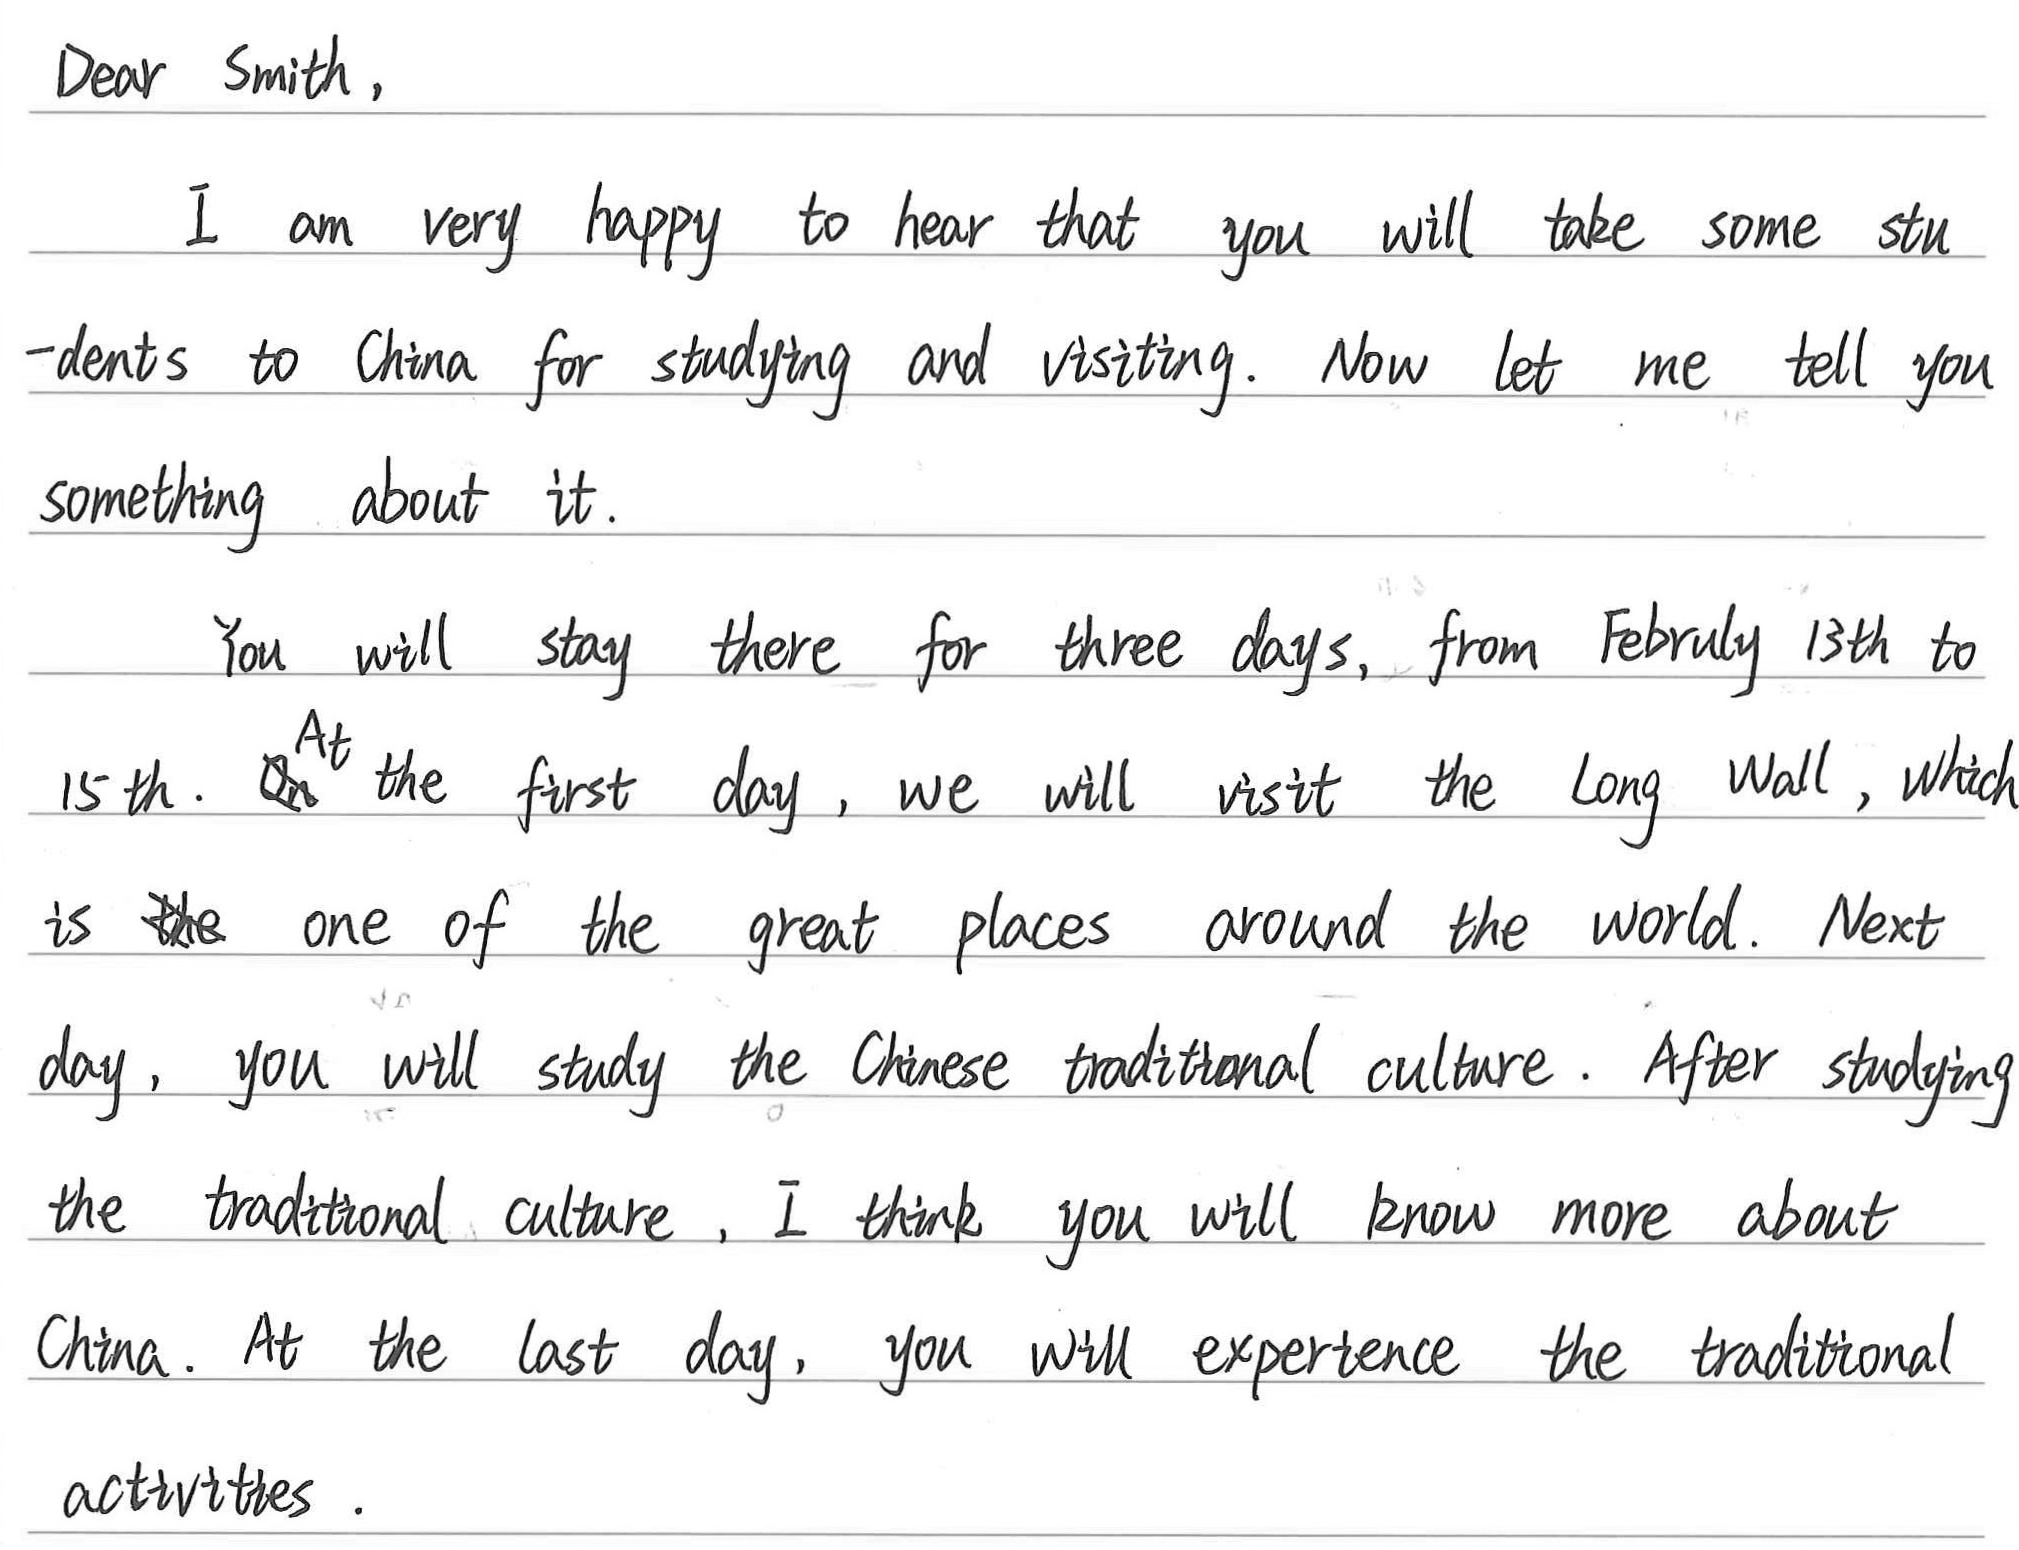 Dear Smith,
I am very happy to hear that you will take some stu
-dents to China for studying and visiting. Now let me tell you
something about it.
You will stay there for three days, from Februly 13th to
15th. At the first day, we will visit the Long Wall, which
is one of the great places around the world. Next
day, you will study the Chinese traditional culture. After studying
the traditional culture, I think you will know more about
China. At the last day, you will experience the traditional
activities.